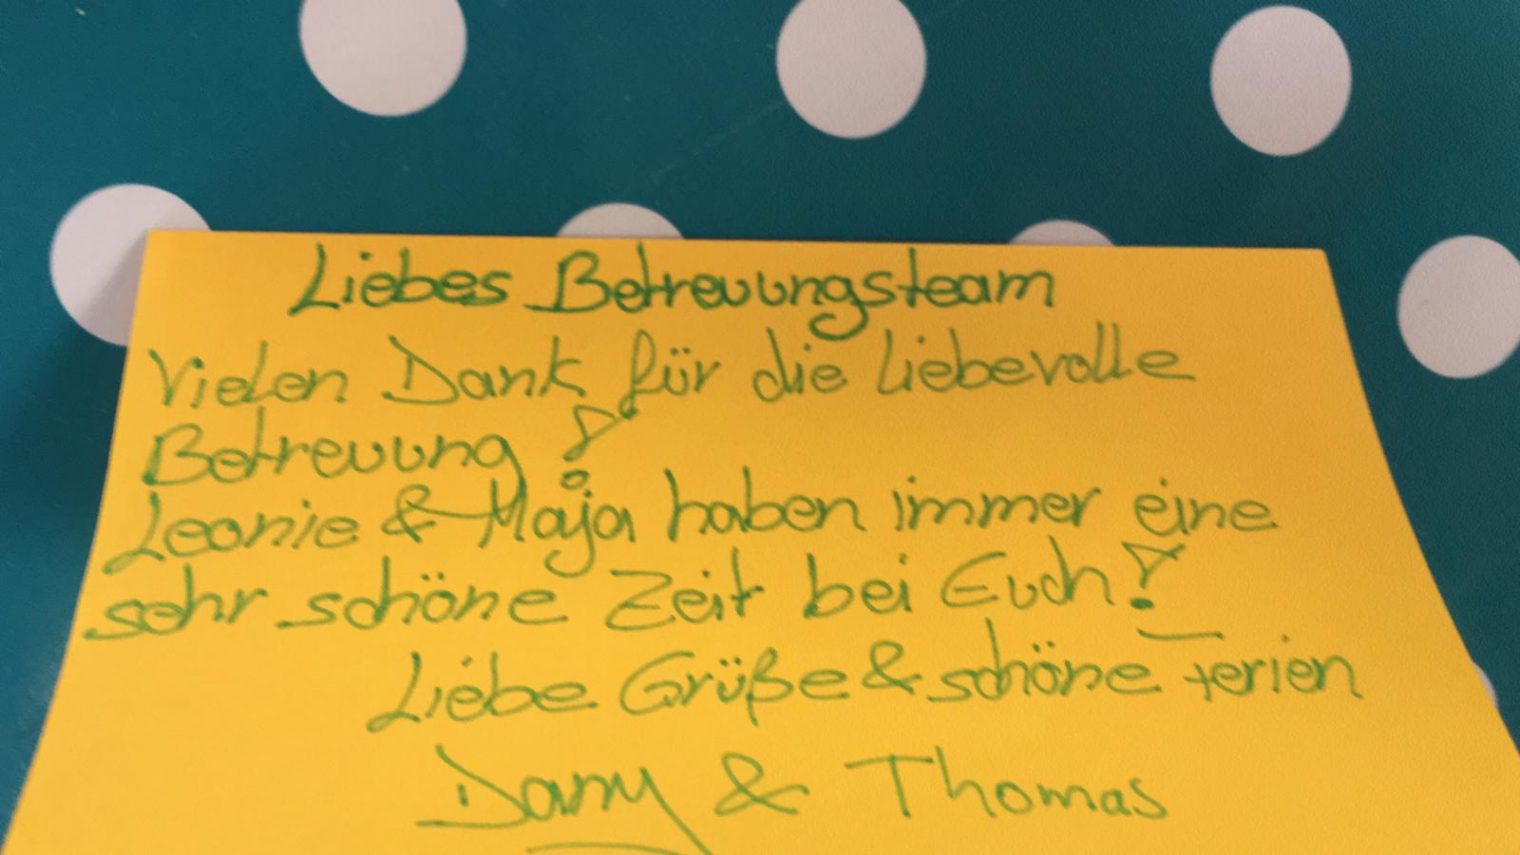 Liebes Betreuungsteam
Vielen Dank für die liebevolle
Betreuung!
Leonie & Maja haben immer eine
sehr schöne Zeit bei Euch!
Liebe Grüße & schöne Ferien
Dany & Thomas